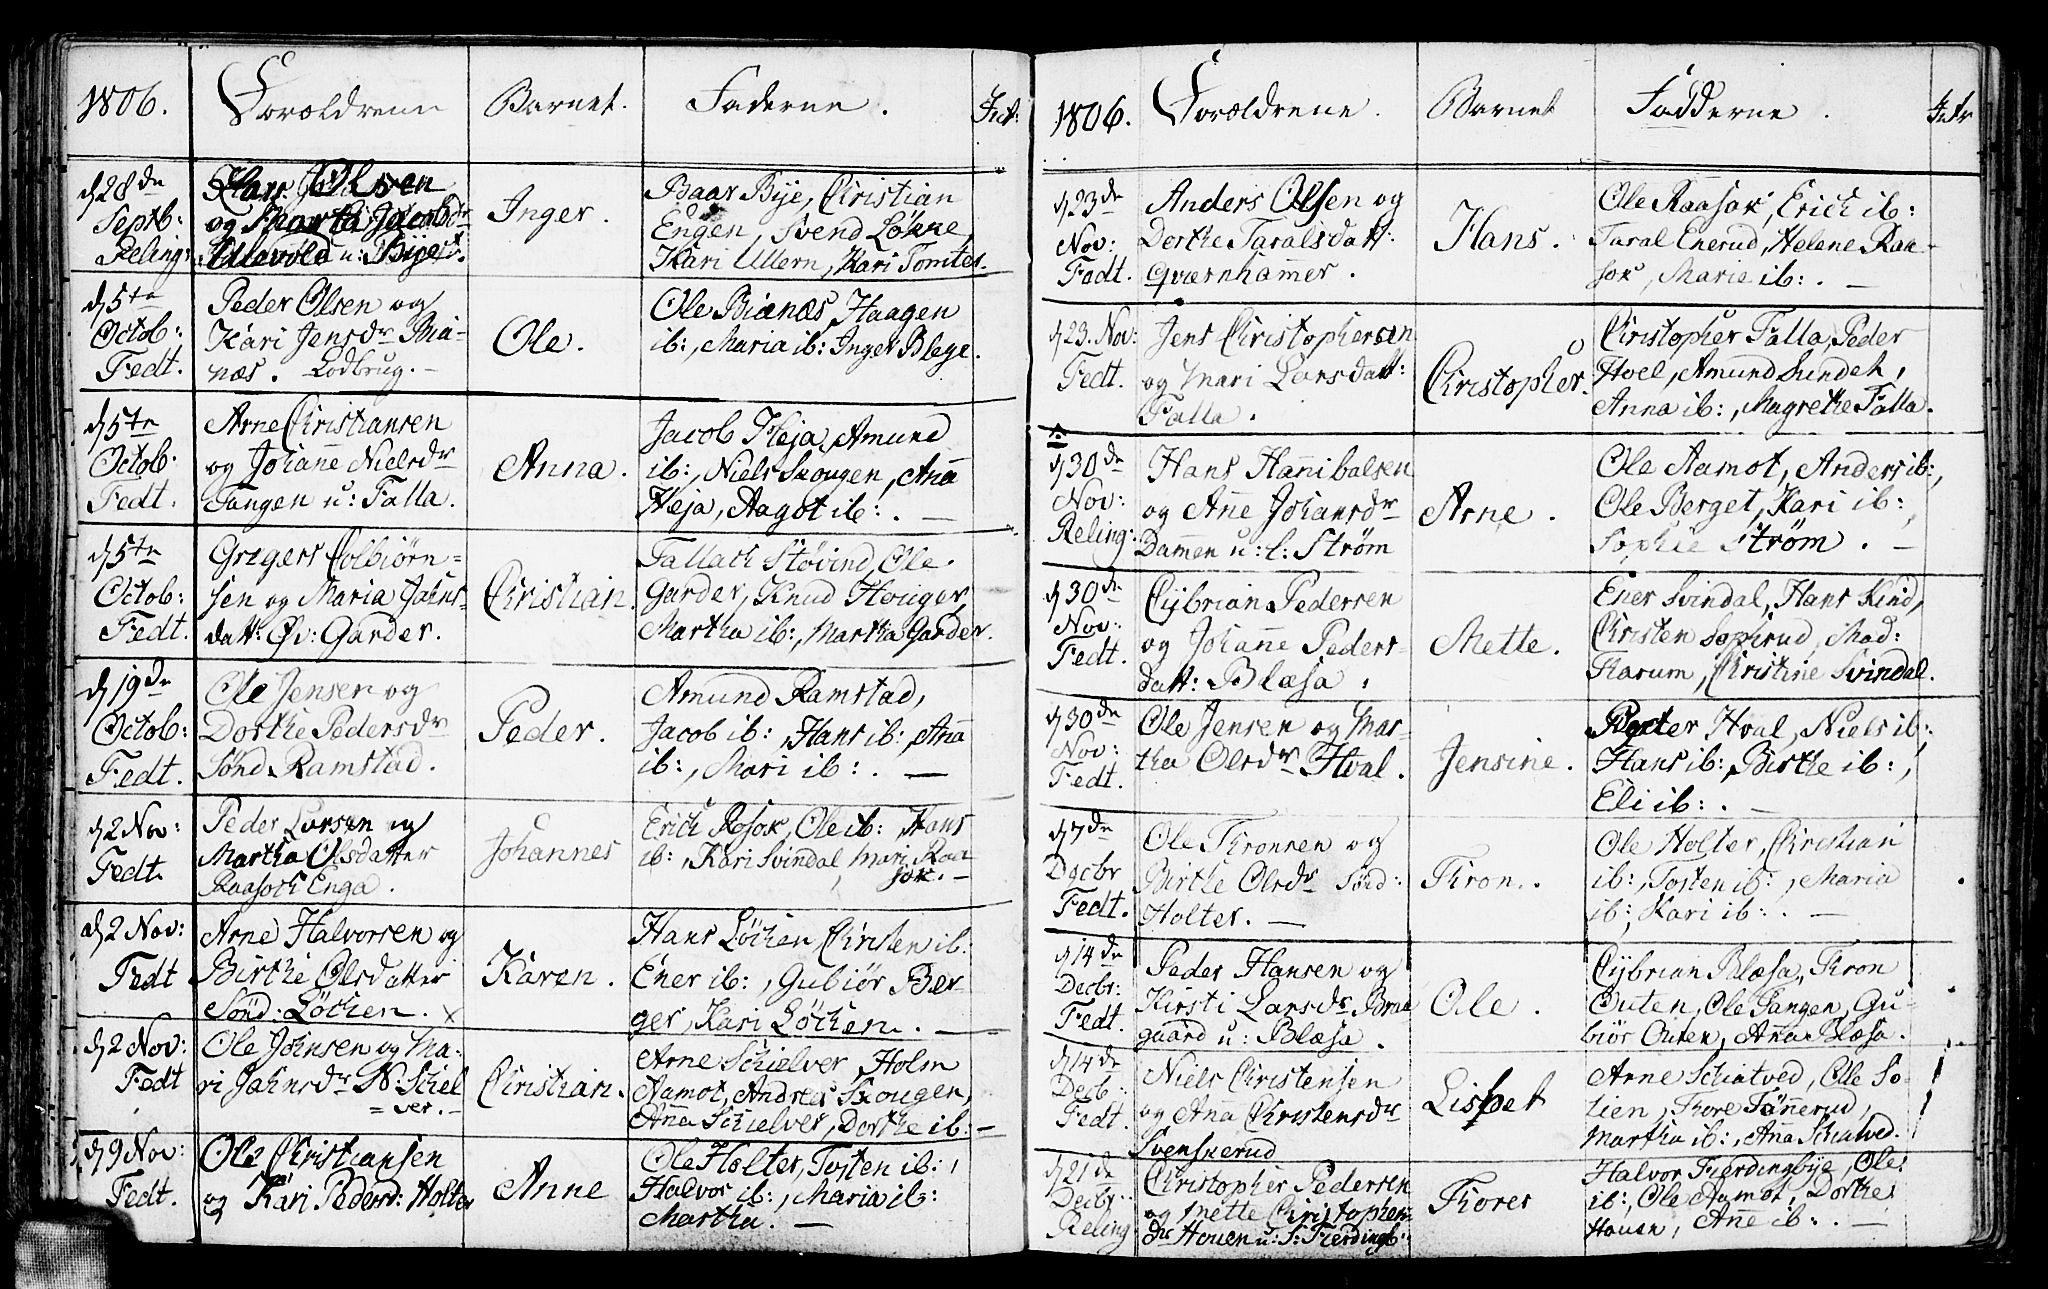 1806. Forældrene Barnet. Faderne. Int:
d 28de Septb: Reling:
Olsen
og Martha Jacobdr
Ullevold u: Bije
Inger.
Baar Bije, Christian
Engen, Svend Løkne,
Kari Ullern, Kari Tomter.
d 5te Octob: Fedt.
Peder Olsen og
Kari Jensdr Biæ-
næs. Lodbrug.-
Ole.
Ole Biænæs Haagen
ib:, Maria ib: Inger Blege.
d 5te Octob: Fedt.
Arne Christiansen
og Johanne Nielsdr
Tangen u: Falla.
Anna.
Jacob Heja, Amund
ib:, Niels Skougen, Ana
Heja, Aagot ib:. —
d 5te Octob: Fedt.
Gregers Colbiørn=
sen og Maria Jahns-
datt: Øv: Garder.
Christian.
Tallach Støvind, Ole
Garder, Knud Houger,
Martha ib:, Martha Garder.
d 19de Octob: Fedt.
Ole Jensen og
Dorthe Pedersdr
Sønd. Ramstad.
Peder.
Amund Ramstad,
Jacob ib:, Hans ib:, Ana
ib:, Mari ib:. —
d 2 Nov: Fedt.
Peder Larsen og
Martha Olsdatter
Raasoch Enga.
Johannes
Erich Rosok, Ole ib: Hans
ib:, Kari Svindal, Mari Raa
sok.-
d 2 Nov: Fedt
Arne Halvorsen og
Birthe Olsdatter
Sønd: Løchen. x
Karen.
Hans Løchen Christen ib:
Ener ib:, Gubiør Ber-
ger, Kari Løchen. —
d 2 Nov: Fedt
Ole Johnsen og Ma-
ri Jahnsdr N: Schiel
= ver.-
Christian.
Arne Schielver, Holm
Aamot, Andreas Skougen,
Anna Schielver, Dorthe ib:-
d 9 Nov: Fedt.
Ole Christiansen
og Kari Pedersd: Holter
Anne
Ole Holter, Tosten ib:,
Halvor ib:, Maria ib:
Martha. —
1806. Forældrene. Barnet Fadderne. Intr
d 23de Nov: Født.
Anders Olsen og
Dorthe Taralsdatt:
Qværnhammer.
Hans.
Ole Raasok, Erich ib:
Taral Enerud, Helene Raa-
sok, Marie ib:. —
d 23. Nov: Fedt.
Jens Christophersen
og Mari Larsdatt:
Falla.
Christopher.
Christopher Falla, Peder
Hoel, Amund Sundeh,
Anna ib:, Magrethe Falla.
d 30de Nov: Reling:
Hans Hannibalsen
og Anne Johansdr
Dammen u: t: Strøm
Arne.
Ole Aamot, Anders ib:,
Ole Berget, Kari ib:,
Sophie Strøm. —
d 30de Nov: Fedt.
Cybrian Pedersen
og Johanne Peders-
datt: Blæsa.
Mette.
Ener Svindal, Hans Kind,
Christen Sophrud, Mad:
Harum, Christine Svindal.
d 30de Nov: Fedt.
Ole Jensen og Mar-
tha Olsdr Hval.
Jensine.
Hval, Niels ib:
Hans ib:, Birthe ib:,
Eli ib:. —
d 7de Decbr Fedt.
Ole Thronsen og
Birthe Olsdr Sønd:
Holter. —
Thron.
Ole Holter, Christian
ib:, Tosten ib:, Maria
ib:, Kari ib:. —
d 14de Decbr: Fedt.
Peder Hansen og
Kirsti Larsdr Braa
gaard u: Blæsa.
Ole.
Cybrian Blæsa, Thron
Outen, Ole Tangen, Gu-
biør Outen, Anna Blæsa.
d 14de Decb: Fedt.
Niels Christensen
og Anna Christensdr
Svenskerud
Lisbet
Arne Schiatved, Ole So-
lien, Thore Tønnerud,
Martha ib:, Anna Schiatved.
d 21de Decbr: Reling
Christopher Pedersen
og Mette Christophers-
dr Houen u: F: Fierdingb:
Thorer
Halvor Fierdingbye, Ole
ib:, Ole Aamot, Dorthe
Houen, Anne ib:. —